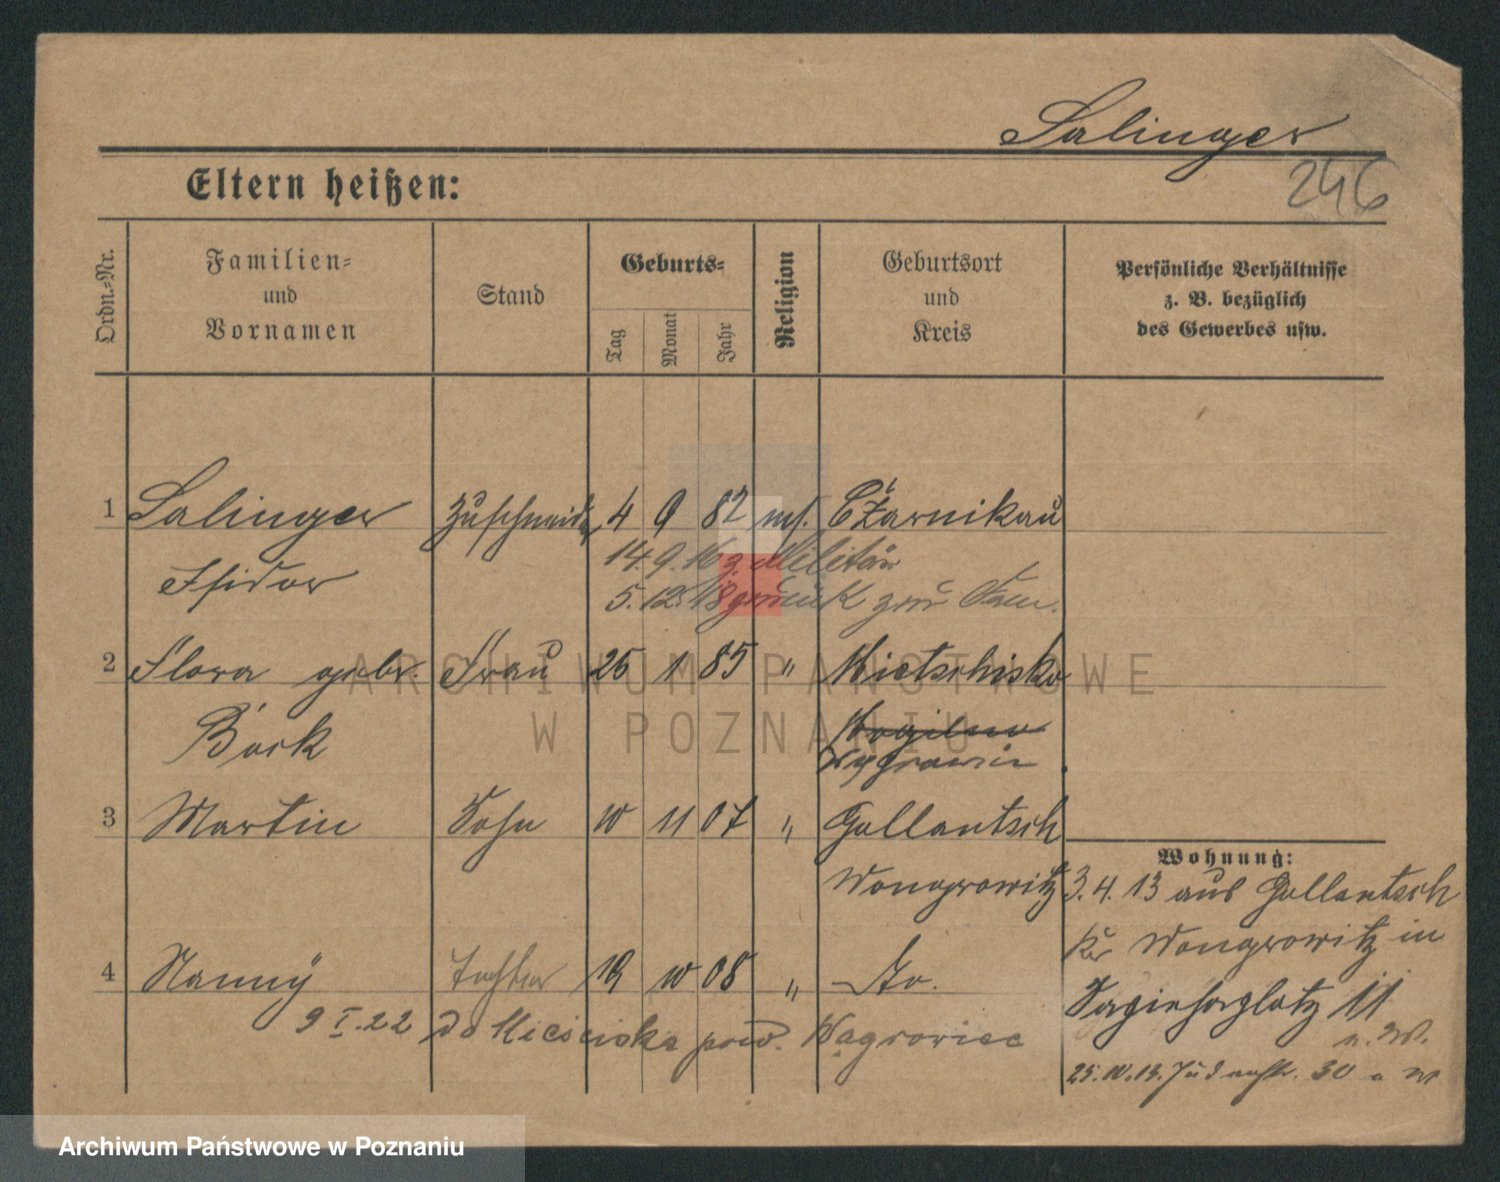 Salinger
246
Eltern heißen:
Ordn.-Nr.
Familien-
und
Vornamen
Stand
Geburts-
Tag
Monat
Jahr
Religion
Geburtsort
und
Kreis
Persönliche Verhältnisse
z. B. bezüglich
des Gewerbes usw.
1 Salinger Zuschneider 4 9 82 mos. Czarnikau
Isidor
14.9.16 z. Militär
5.12.18 zurück zur Fam.
2 Flora gebr. Frau 25 1 85 " Mietschisko
Bock Mogilno
Wągrowiec
3 Martin Sohn 10 11 07 " Gollantsch
Wongrowitz
4 Nanny Tochter 19 10 08 " Do.
9 I. 22 do Mieściska pow. Wągrowiec
Wohnung:
3.4.13 aus Gollantsch
Kr Wongrowitz in
Sapiehaplatz 11
n. W.
25.10.13. Judenstr. 30 a W
ARCHIWUM PAŃSTWOWE
W POZNANIU
Archiwum Państwowe w Poznaniu